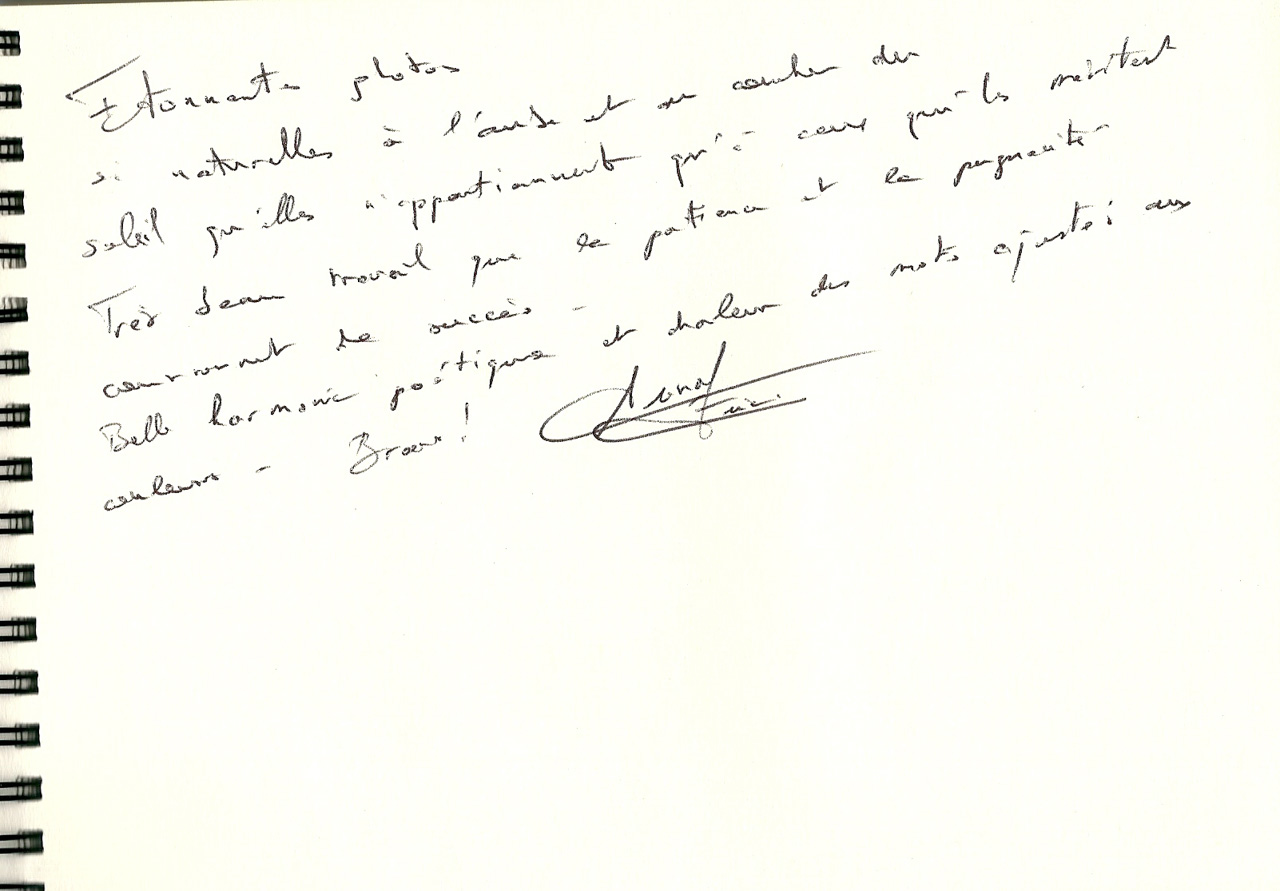 Etonnantes photos
si naturelles à l'aube et au coucher du
soleil qu'elles n'appartiennent qu'à ceux qui les méritent
Très beau travail que la patience et la pugnacité
couronnent de succès -
Belle harmonie poétique et chaleur des mots ajustés aux
couleurs - Bravo !